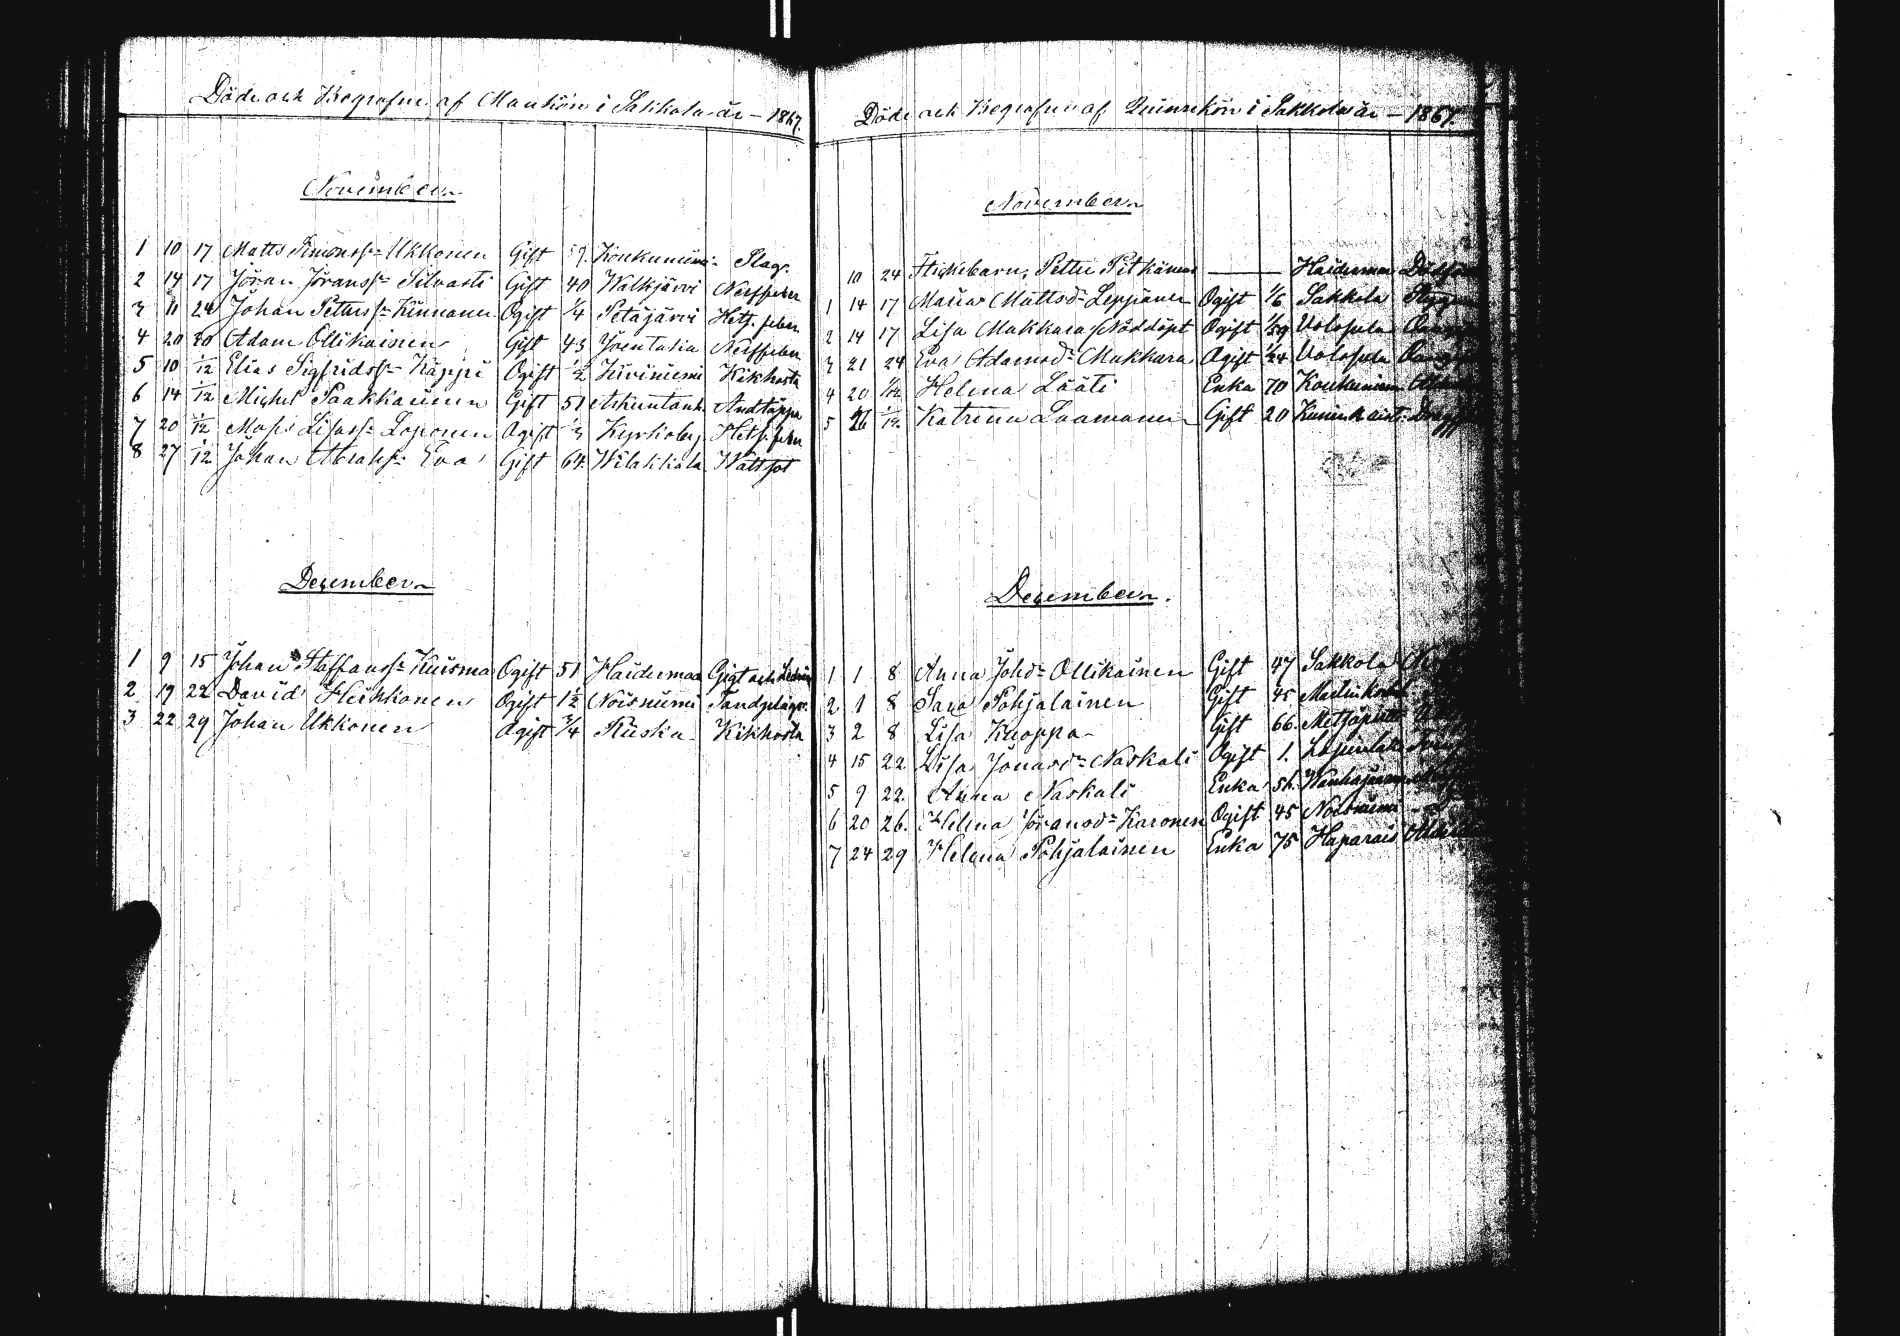 Döde och Begrafne af Mankön i Sakkola år – 1867.
November
1 10 17 Matts Simonss Ukkonen Gift 57. Koukuniemi Slag.
2 14 17 Jöran Jöranss Silvasti Gift 40 Walkjärvi Nerffeber
3 11 24 Johan Petterss Kinnanen Ogift 1/4 Petäjärvi Hets. feber
4 20 20 Adam Ollikainen Gift 43 Joentaka Nerffeber
5 10 1/12 Elias Sigfridss Käppi Ogift 1/2 Kiviniemi Kikhosta
6 14 1/12 Michel Paakkunen Gift 51 Andtäppa
7 20 1/12 Mats Ogift 1/3 Hets. feber
8 27 1/12 Johan Abrahss Eva Gift 64. Wilakkala Wattsot
December
1 9 15 Johan Staffanss Kuisma Ogift 51 Haidermaa Gigt och
2 19 22 David Heikkonen Ogift 1 1/2 Noisniemi Tandplågor.
3 22 29 Johan Ukkonen Ogift 3/4 Riiska Kikhosta
Döde och Begrafne af Quinnkön i Sakkola år – 1867.
November
10 24 Flickebarn, Petter Pitkänen — Haidermaa
1 14 17 Maria Mattsd Leppänen Ogift 1/6 Sakkola
2 14 17 Lisa Makkara Nöddöpt Ogift 1/59 Volossula
3 21 24 Eva Adamsd Mukkura Ogift 1/24 Volossula
4 20 1/12 Helena Lääti Enka 70 Koukuniemi
5 26 1/12 Katrina Laamanen Gift 20
December.
1 1 8 Anna Johd Ollikainen Gift 47 Sakkola
2 1 8 Sara Pohjalainen Gift 45
3 2 8 Lisa Kuoppa Gift 66. Metsäpirtti
4 15 22 Lisa Jonasd Naskali Ogift 1.
5 9 22. Anna Naskali Enka 56. Wanhajaama
6 20 26. Helena Jöransd Karonen Ogift 45 Noisniemi
7 24 29 Helena Pohjalainen Enka 75 Haparais